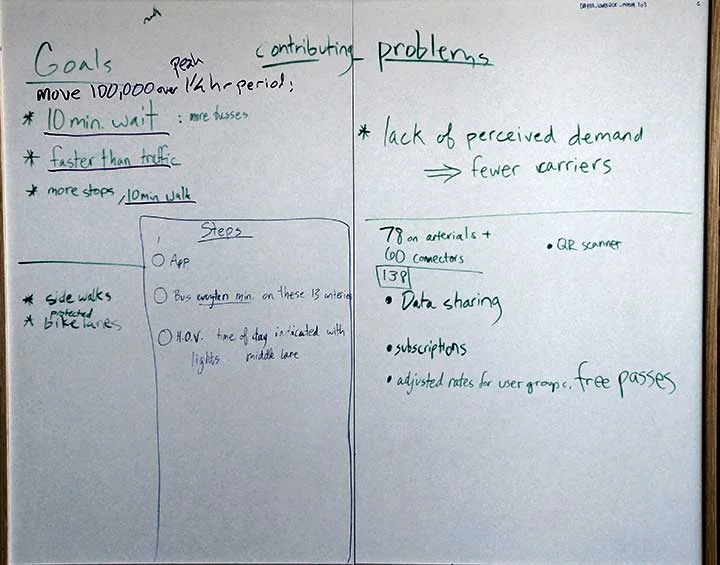 Goals
peak
move 100,000 over 1/4 hr period:
* 10 min. wait : more busses
* faster than traffic
* more stops, 10 min walk
* side walks
protected
* bike lanes
Steps
App
Bus every ten min. on these 13
H.O.V. time of day indicated with
lights middle lane
contributing problems
* lack of perceived demand
⇒ fewer carriers
78 on arterials +
60 connectors
138
• QR scanner
• Data sharing
• subscriptions
• adjusted rates for user groups. free passes